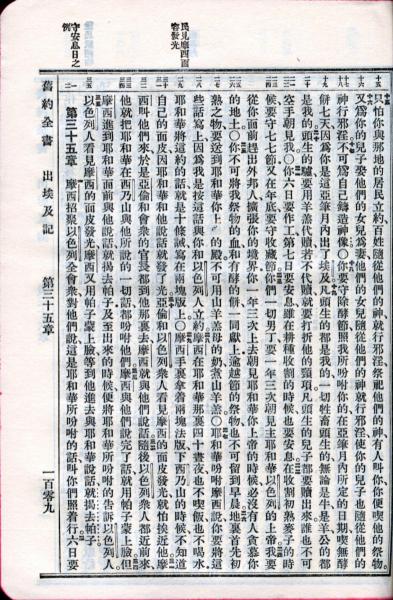 民見摩西面
容發光
守安息日之
例
十五 只怕你與那地的居民立約百姓隨從他們的神就行邪淫祭祀他們的神有人叫你你便喫他的祭物
又爲你的兒子娶他們的女兒爲妻他們的女兒隨從他們的神就行邪淫使你的兒子也隨從他們的
神行邪淫不可爲自己鑄造神像○你要守除酵節照我所吩咐你的在亞筆月內所定的日期喫無酵
餅七天因爲你是這亞筆月內出了埃及凡頭生的都是我的一切牲畜頭生的無論是牛是羊公的都
是我的頭生的驢要用羊羔代贖若不代贖就要打折他的頸項凡頭生的兒子都要贖出來誰也不可
空手朝見我○你六日要作工第七日要安息雖在耕種收割的時候也要安息在收割初熟麥子的時
候要守七七節又在年底要守收藏節你們一切男丁要一年三次朝見主耶和華以色列的上帝我要
從你面前趕出外邦人擴張你的境界你一年三次上去朝見耶和華你上帝的時候必沒有人貪慕你
的地土○你不可將我祭物的血和有酵的餅一同獻上逾越節的祭物也不可留到早晨地裏首先初
熟之物要送到耶和華你上帝的殿不可用山羊羔母的奶煮山羊羔○耶和華吩咐摩西說你要將這
些話寫上因爲我是按這話與你和以色列人立約摩西在耶和華那裏四十晝夜也不喫飯也不喝水
耶和華將這約的話就是十條誡寫在兩塊版上○摩西手裏拿着兩塊法版下西乃山的時候不知道
自己的面皮因耶和華和他說話就發了光亞倫和以色列衆人看見摩西的面皮發光就怕挨近他摩
西叫他們來於是亞倫和會衆的官長都到他那裏去摩西就與他們說話隨後以色列衆人都近前來
他就把耶和華在西乃山與他所說的一切話都吩咐他們摩西與他們說完了話就用帕子蒙上臉但
摩西進到耶和華面前與他說話就揭去帕子及至出來的時候便將耶和華所吩咐的告訴以色列人
以色列人看見摩西的面皮發光摩西又用帕子蒙上臉等到他進去與耶和華說話就揭去帕子
第三十五章 摩西招聚以色列全會衆對他們說這是耶和華所吩咐的話叫你們照着行六日要
舊約全書 出埃及記 第三十五章 一百零九